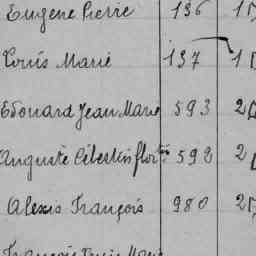 Eugène Pierre 136 1
Louis Marie 137 1
Edouard Jean Marie 593 2
Auguste Célestin flor 592 2
Alexis François 980 2
François Marie